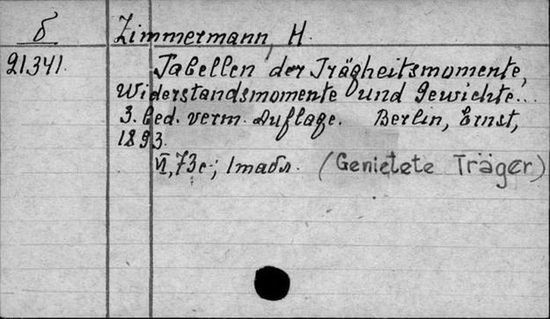 б Zimmermann, H.
21.341. Tabellen der Trägheitsmomente,
Widerstandsmomente und Gewichte...
3. bed. verm. Auflage. Berlin, Ernst,
1893.
VI, 73 c; 1 табл. (Genietete Träger)